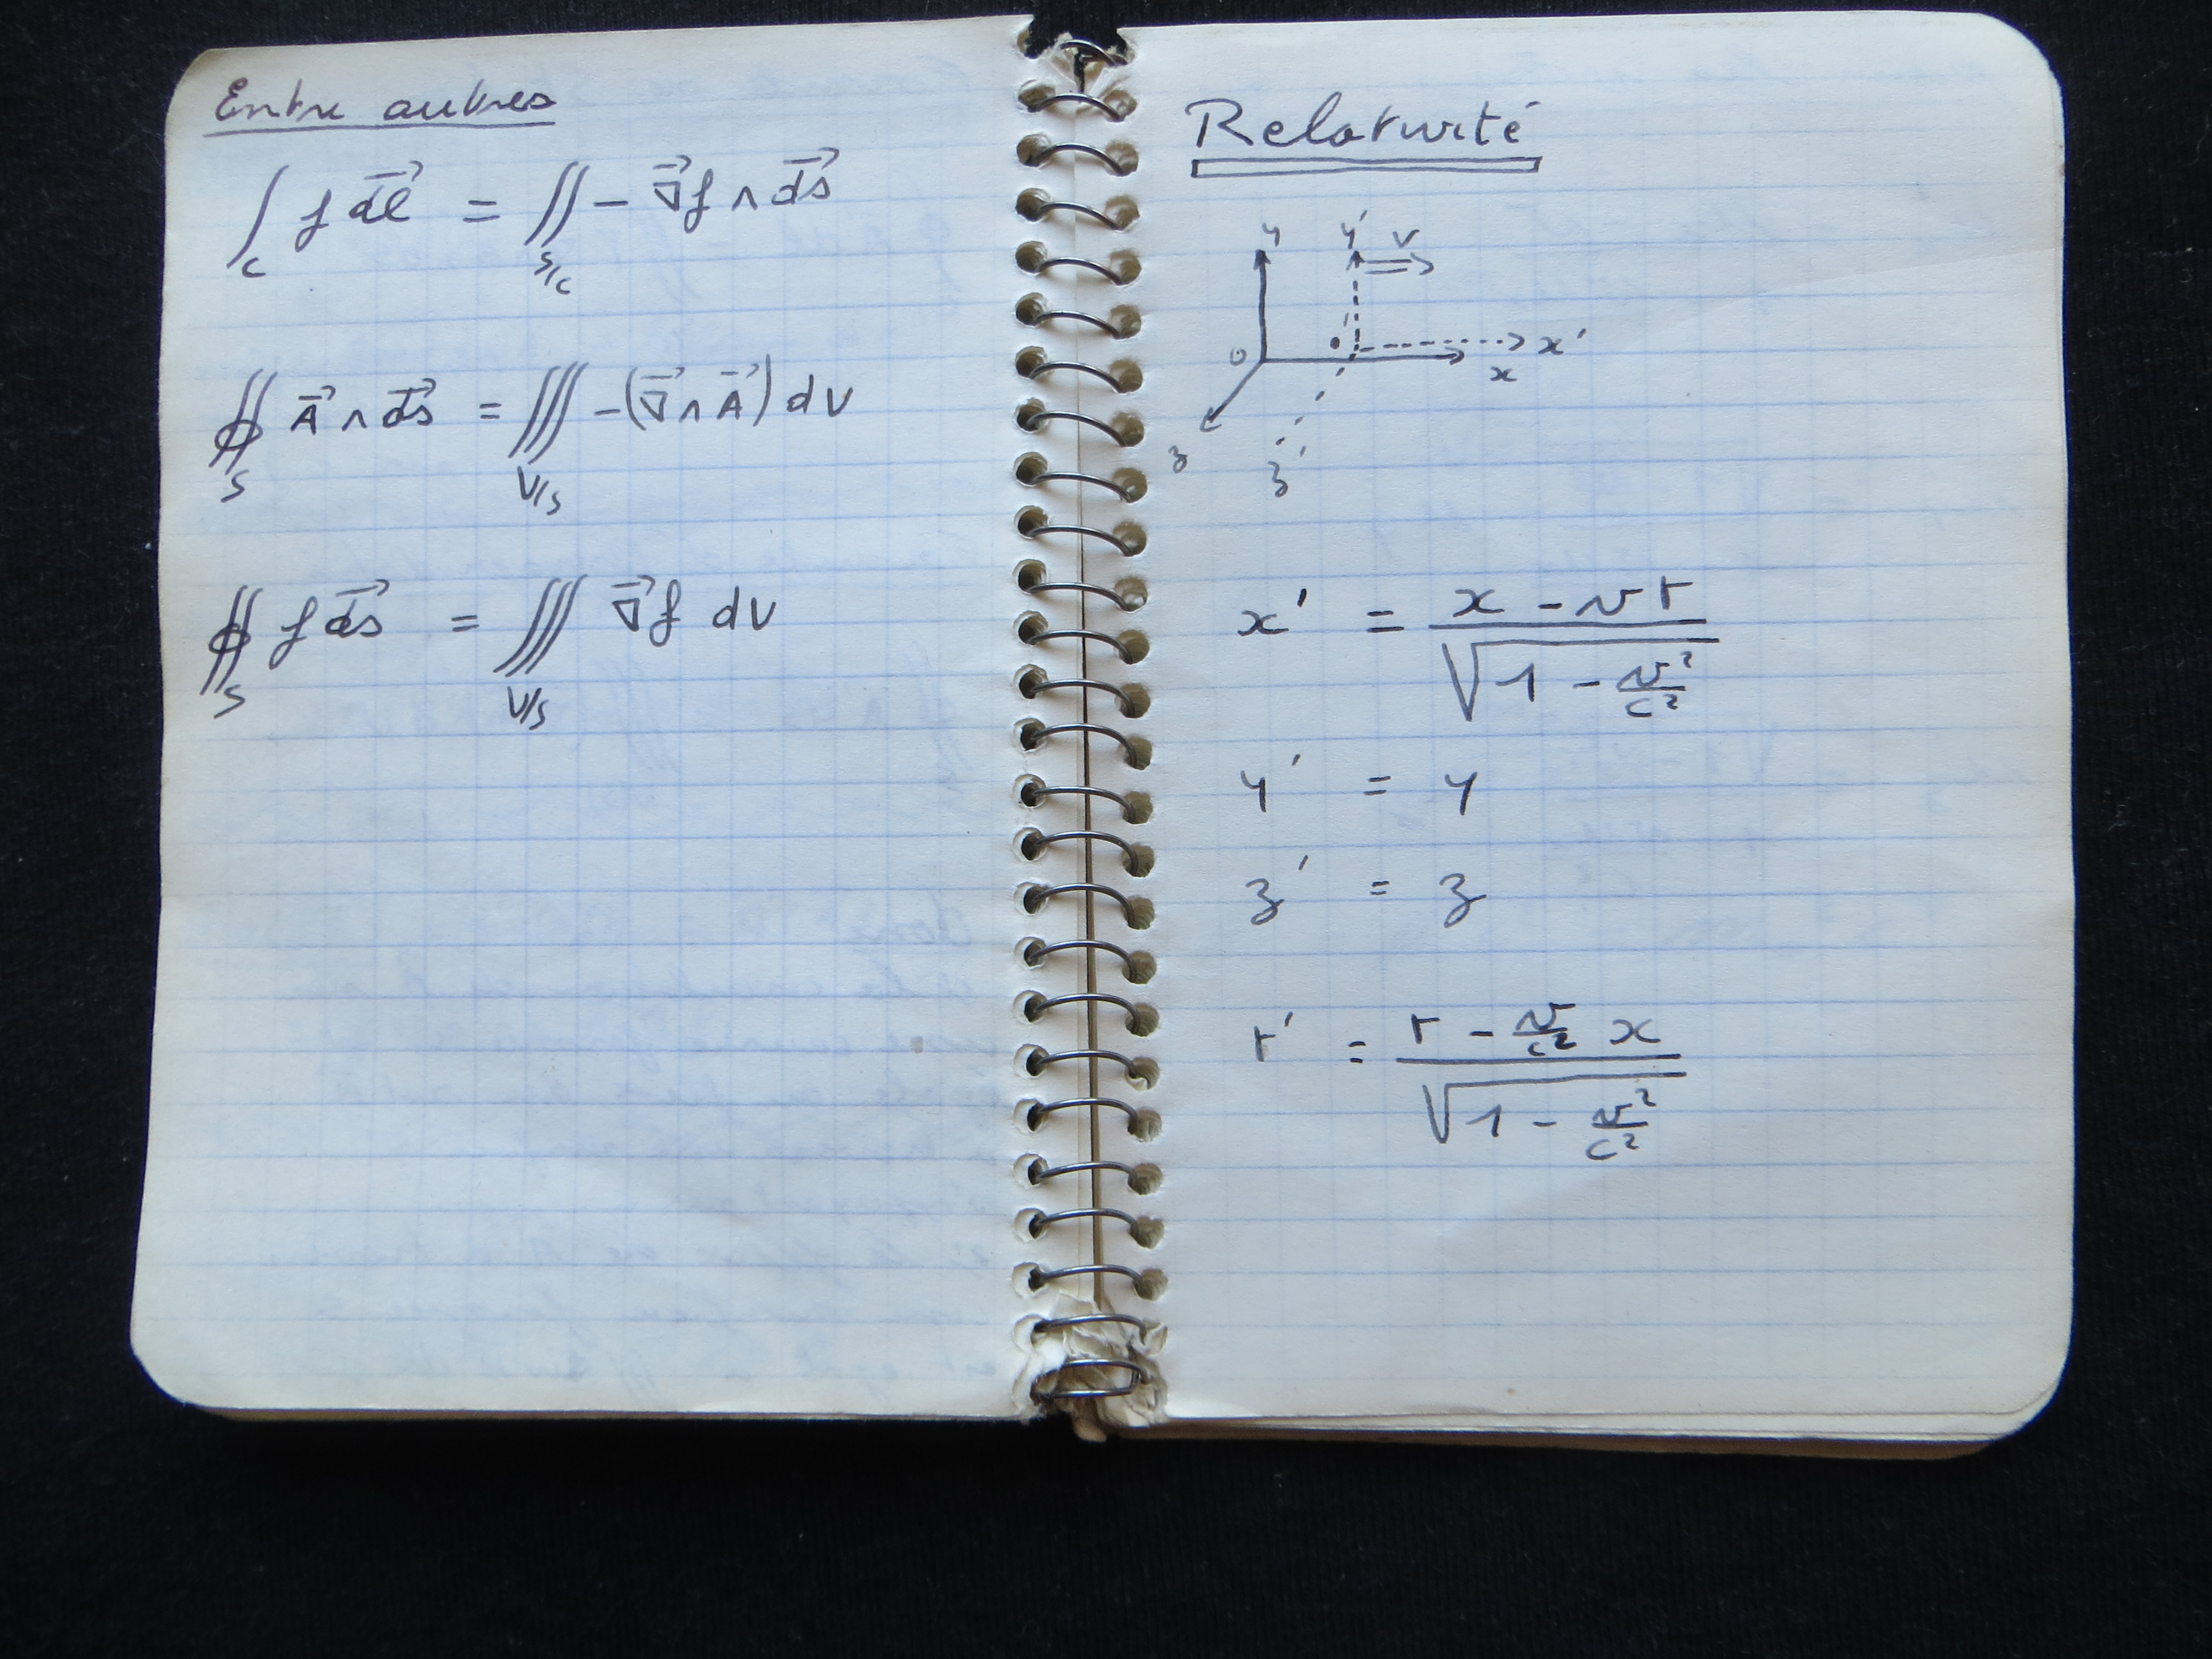 Entre autres
∫_C f d⃗l = ∬_{S/C} − ∇⃗f ∧ d⃗s
∯_S A⃗ ∧ d⃗s = ∭_{V/S} −(∇⃗ ∧ A⃗) dV
∯_S f d⃗s = ∭_{V/S} ∇⃗f dV
Relativité
y y' v
o o' x'
x
z z'
x' = (x − vt) / √(1 − v²/c²)
y' = y
z' = z
t' = (t − v/c² x) / √(1 − v²/c²)